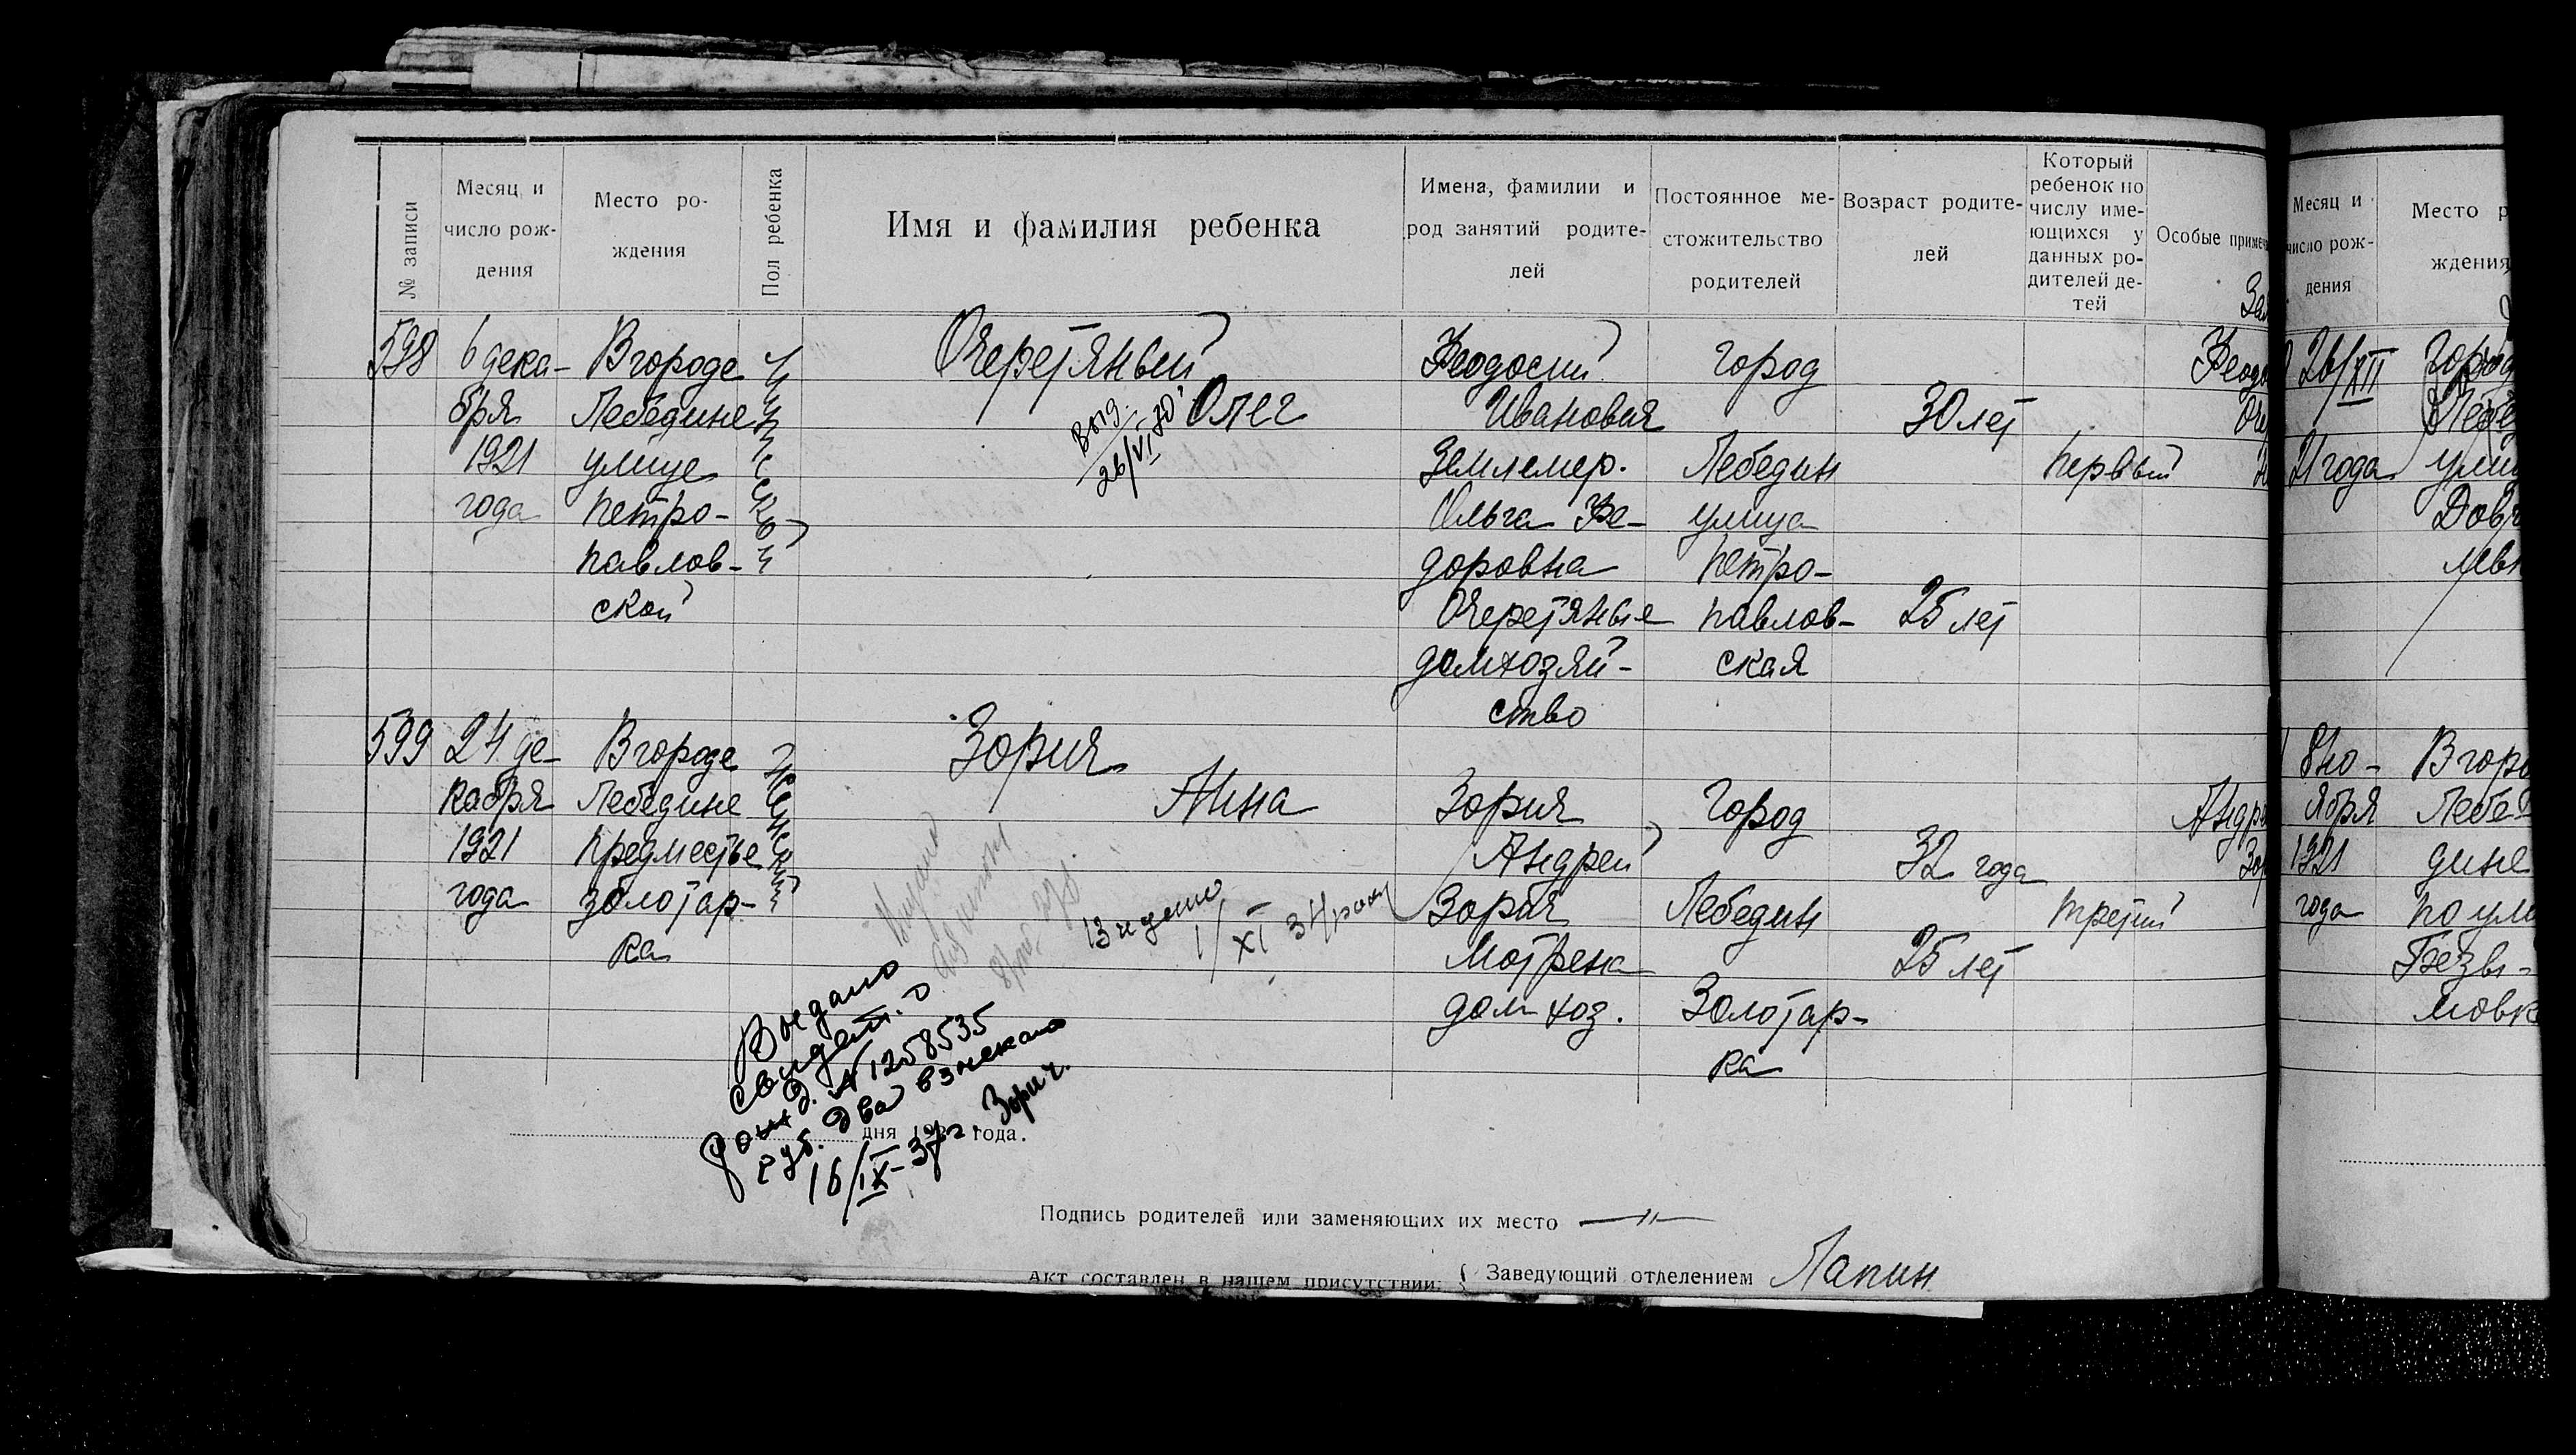 № записи
Месяц и
число рож-
дения
Место ро-
ждения
Пол ребенка
Имя и фамилия ребенка
Имена, фамилии и
род занятий родите-
лей
Постоянное ме-
стожительство
родителей
Возраст родите-
лей
Который
ребенок по
числу име-
ющихся у
данных ро-
дителей де-
тей
Особые примеч
598
6 дека-
бря
1921
года
В городе
Лебедине
улице
Петро-
павлов-
ской
мужской
Очеретяный
Олег
выд.
26/VI 70
Феодосий
Иванович
Землемер.
Ольга Фе-
доровна
Очеретяные
домхозяй-
ство
город
Лебедин
улица
Петро-
павлов-
ская
30 лет
25 лет
первый
Феодо
599
24 де-
кабря
1921
года
В городе
Лебедине
предместье
золотар-
ка
женский
Зорич
Анна
1/XI 34 
Зорич
Андрей
Зорич
Мотрена
дом хоз.
Город
Лебедин
Золотар-
ка
32 года
25 лет
третий
Андре
Зор
Выдано
свидет. о
рожд. № 1258535
руб. два взыскано
16/IX-37г. Зорич.
дня 192 года.
Подпись родителей или заменяющих их место —"—
Акт составлен в нашем присутствии: { Заведующий отделением Лапин
Месяц и
число рож-
дения
Место р
ждения
26/XII
21 года
Город
Лебед
улиц
Довг
левк
8 но-
ября
1921
года
В горо
Лебе
дине
по ули
Безвы-
мовк